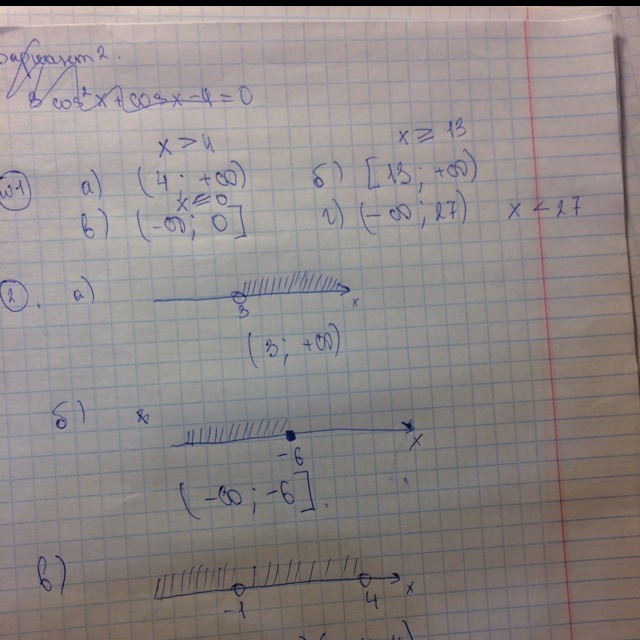 Вариант 2.
3 cos²x + cosx - 4 = 0
x > 4 x ≥ 13
№1 а) (4; +∞) б) [13; +∞)
x ≤ 0
в) (-∞; 0] г) (-∞; 27) x < 27
2. а)
3 x
(3; +∞)
б)
-6 x
(-∞; -6].
в)
-1 4 x